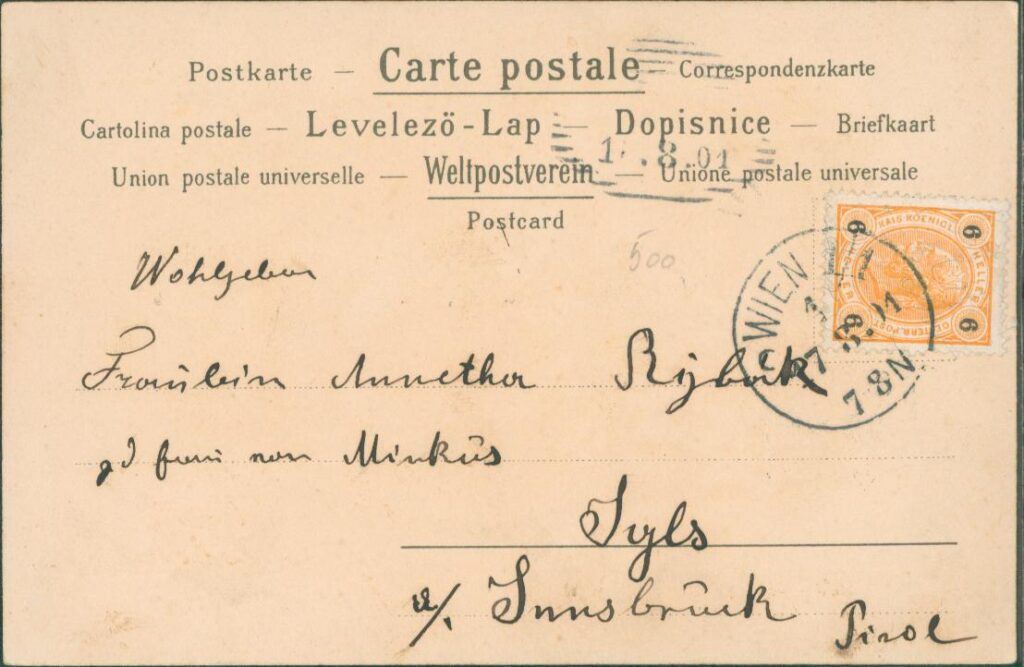 Postkarte — Carte postale — Correspondenzkarte
Cartolina postale — Levelező-Lap — Dopisnice — Briefkaart
Union postale universelle — Weltpostverein — Unione postale universale
Postcard
.8.01
500
KAIS. KOENIGL.
6 6
HELLER
OESTERR. POST
6 6
WIEN
8.01
7-8N
Wohlgeboren
Fräulein Annetha Rybark
von Minkus
Igls
a/. Innsbruck
Tirol